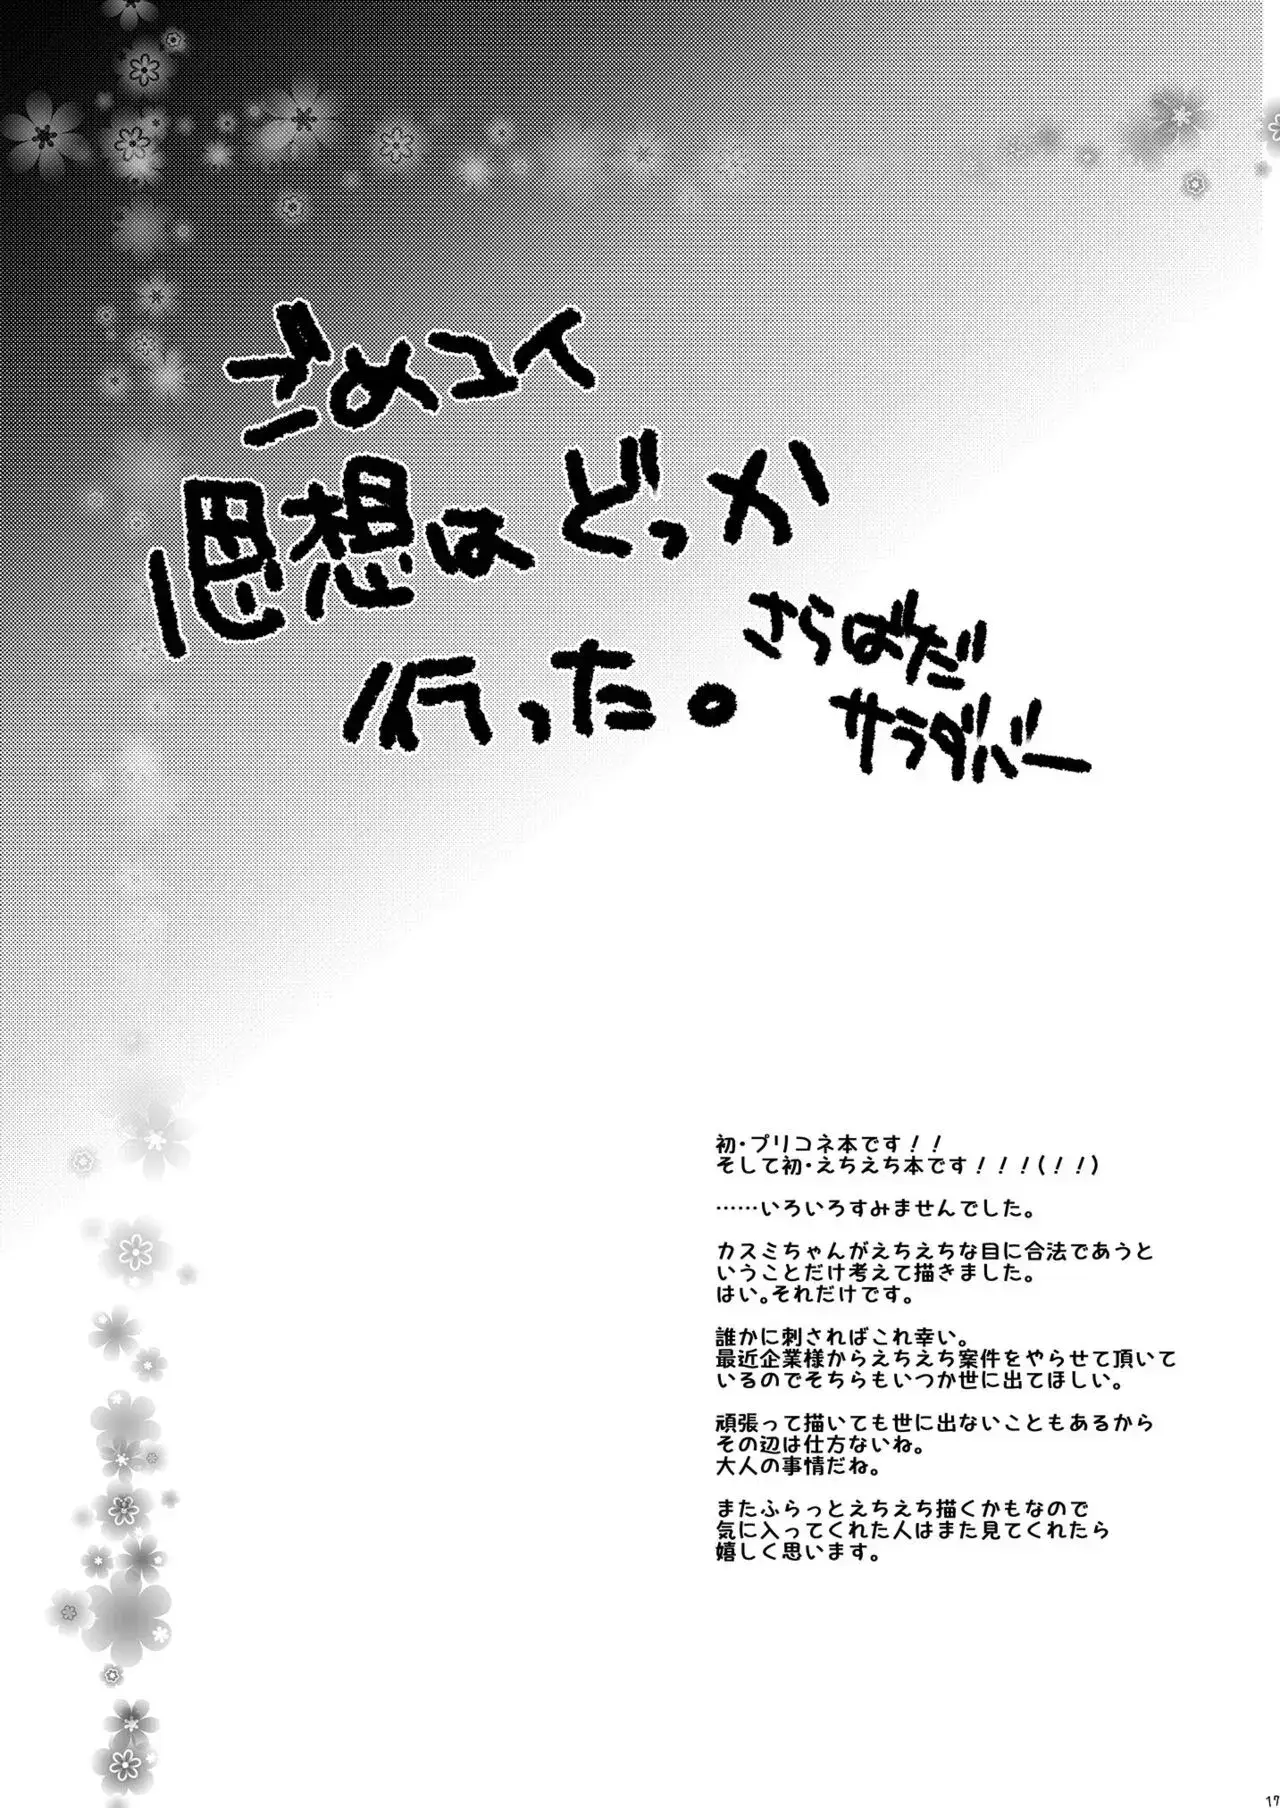 ざめユイ
思想はどっか
行った。
さらばだ
サラダバー
初・プリコネ本です！！
そして初・えちえち本です！！！(！！)
……いろいろすみませんでした。
カスミちゃんがえちえちな目に合法であうと
いうことだけ考えて描きました。
はい。それだけです。
誰かに刺さればこれ幸い。
最近企業様からえちえち案件をやらせて頂いて
いるのでそちらもいつか世に出てほしい。
頑張って描いても世に出ないこともあるから
その辺は仕方ないね。
大人の事情だね。
またふらっとえちえち描くかもなので
気に入ってくれた人はまた見てくれたら
嬉しく思います。
17